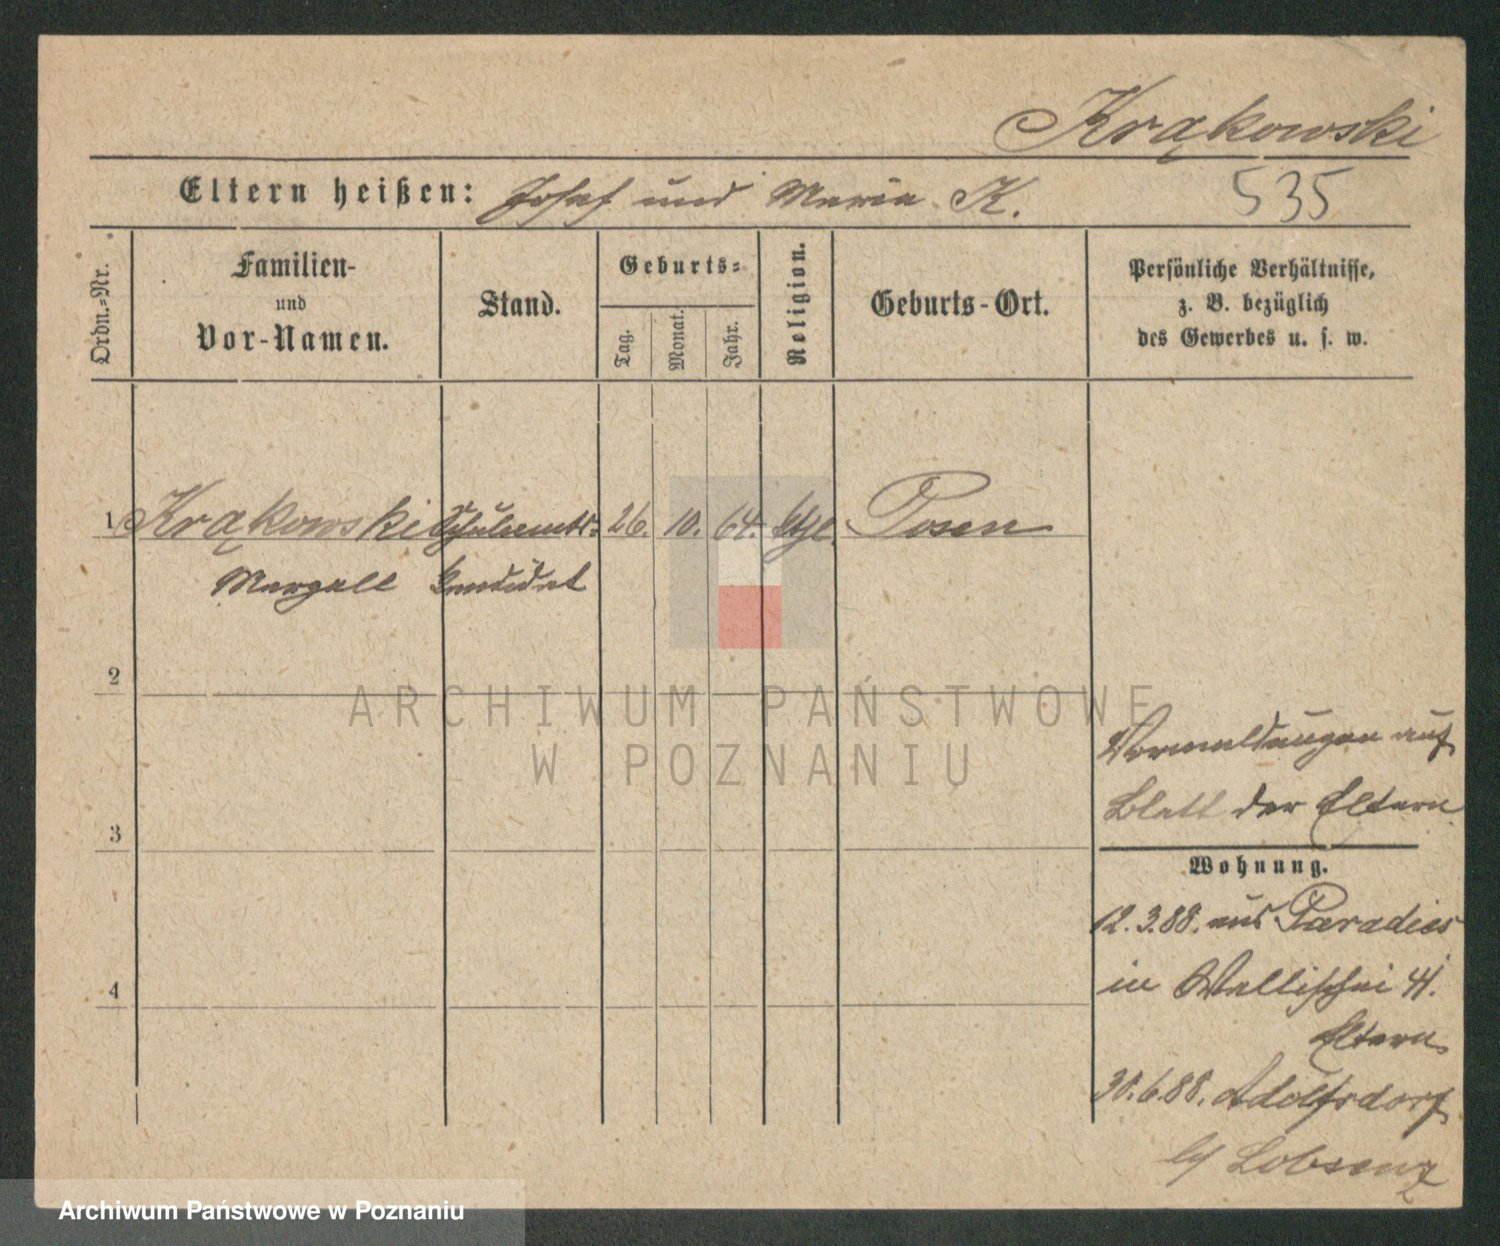 Krąkowski
Eltern heißen: Josef und Maria K.
535
Ordn.-Nr.
Familien-
und
Vor-Namen.
Stand.
Geburts-
Tag.
Monat.
Jahr.
Religion.
Geburts-Ort.
Persönliche Verhältnisse,
z. B. bezüglich
des Gewerbes u. s. w.
1 Krąkowski Schulamts- 26. 10. 64. ktl. Posen
Marzell Kandidat
2
3
4
ARCHIWUM PAŃSTWOWE
W POZNANIU
Vormeldungen auf
Blatt der Eltern
Wohnung.
12.3.88. aus Paradies
in Wallischei 41.
Eltern
30.6.88. Adolfsdorf
b/ Lobsenz
Archiwum Państwowe w Poznaniu